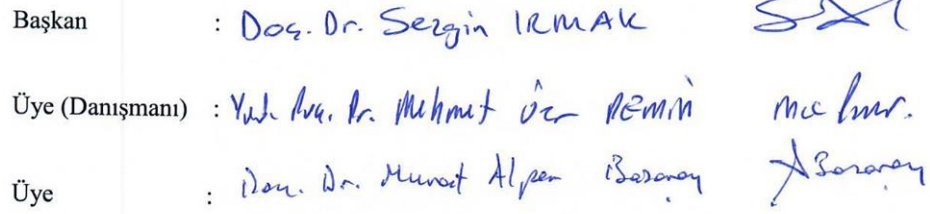 Başkan : Doç. Dr. Sezgin IRMAK
Üye (Danışmanı) : Yrd. Doç. Dr. Mehmet Özer DEMİR
Üye : Doç. Dr. Murat Alper Basaran